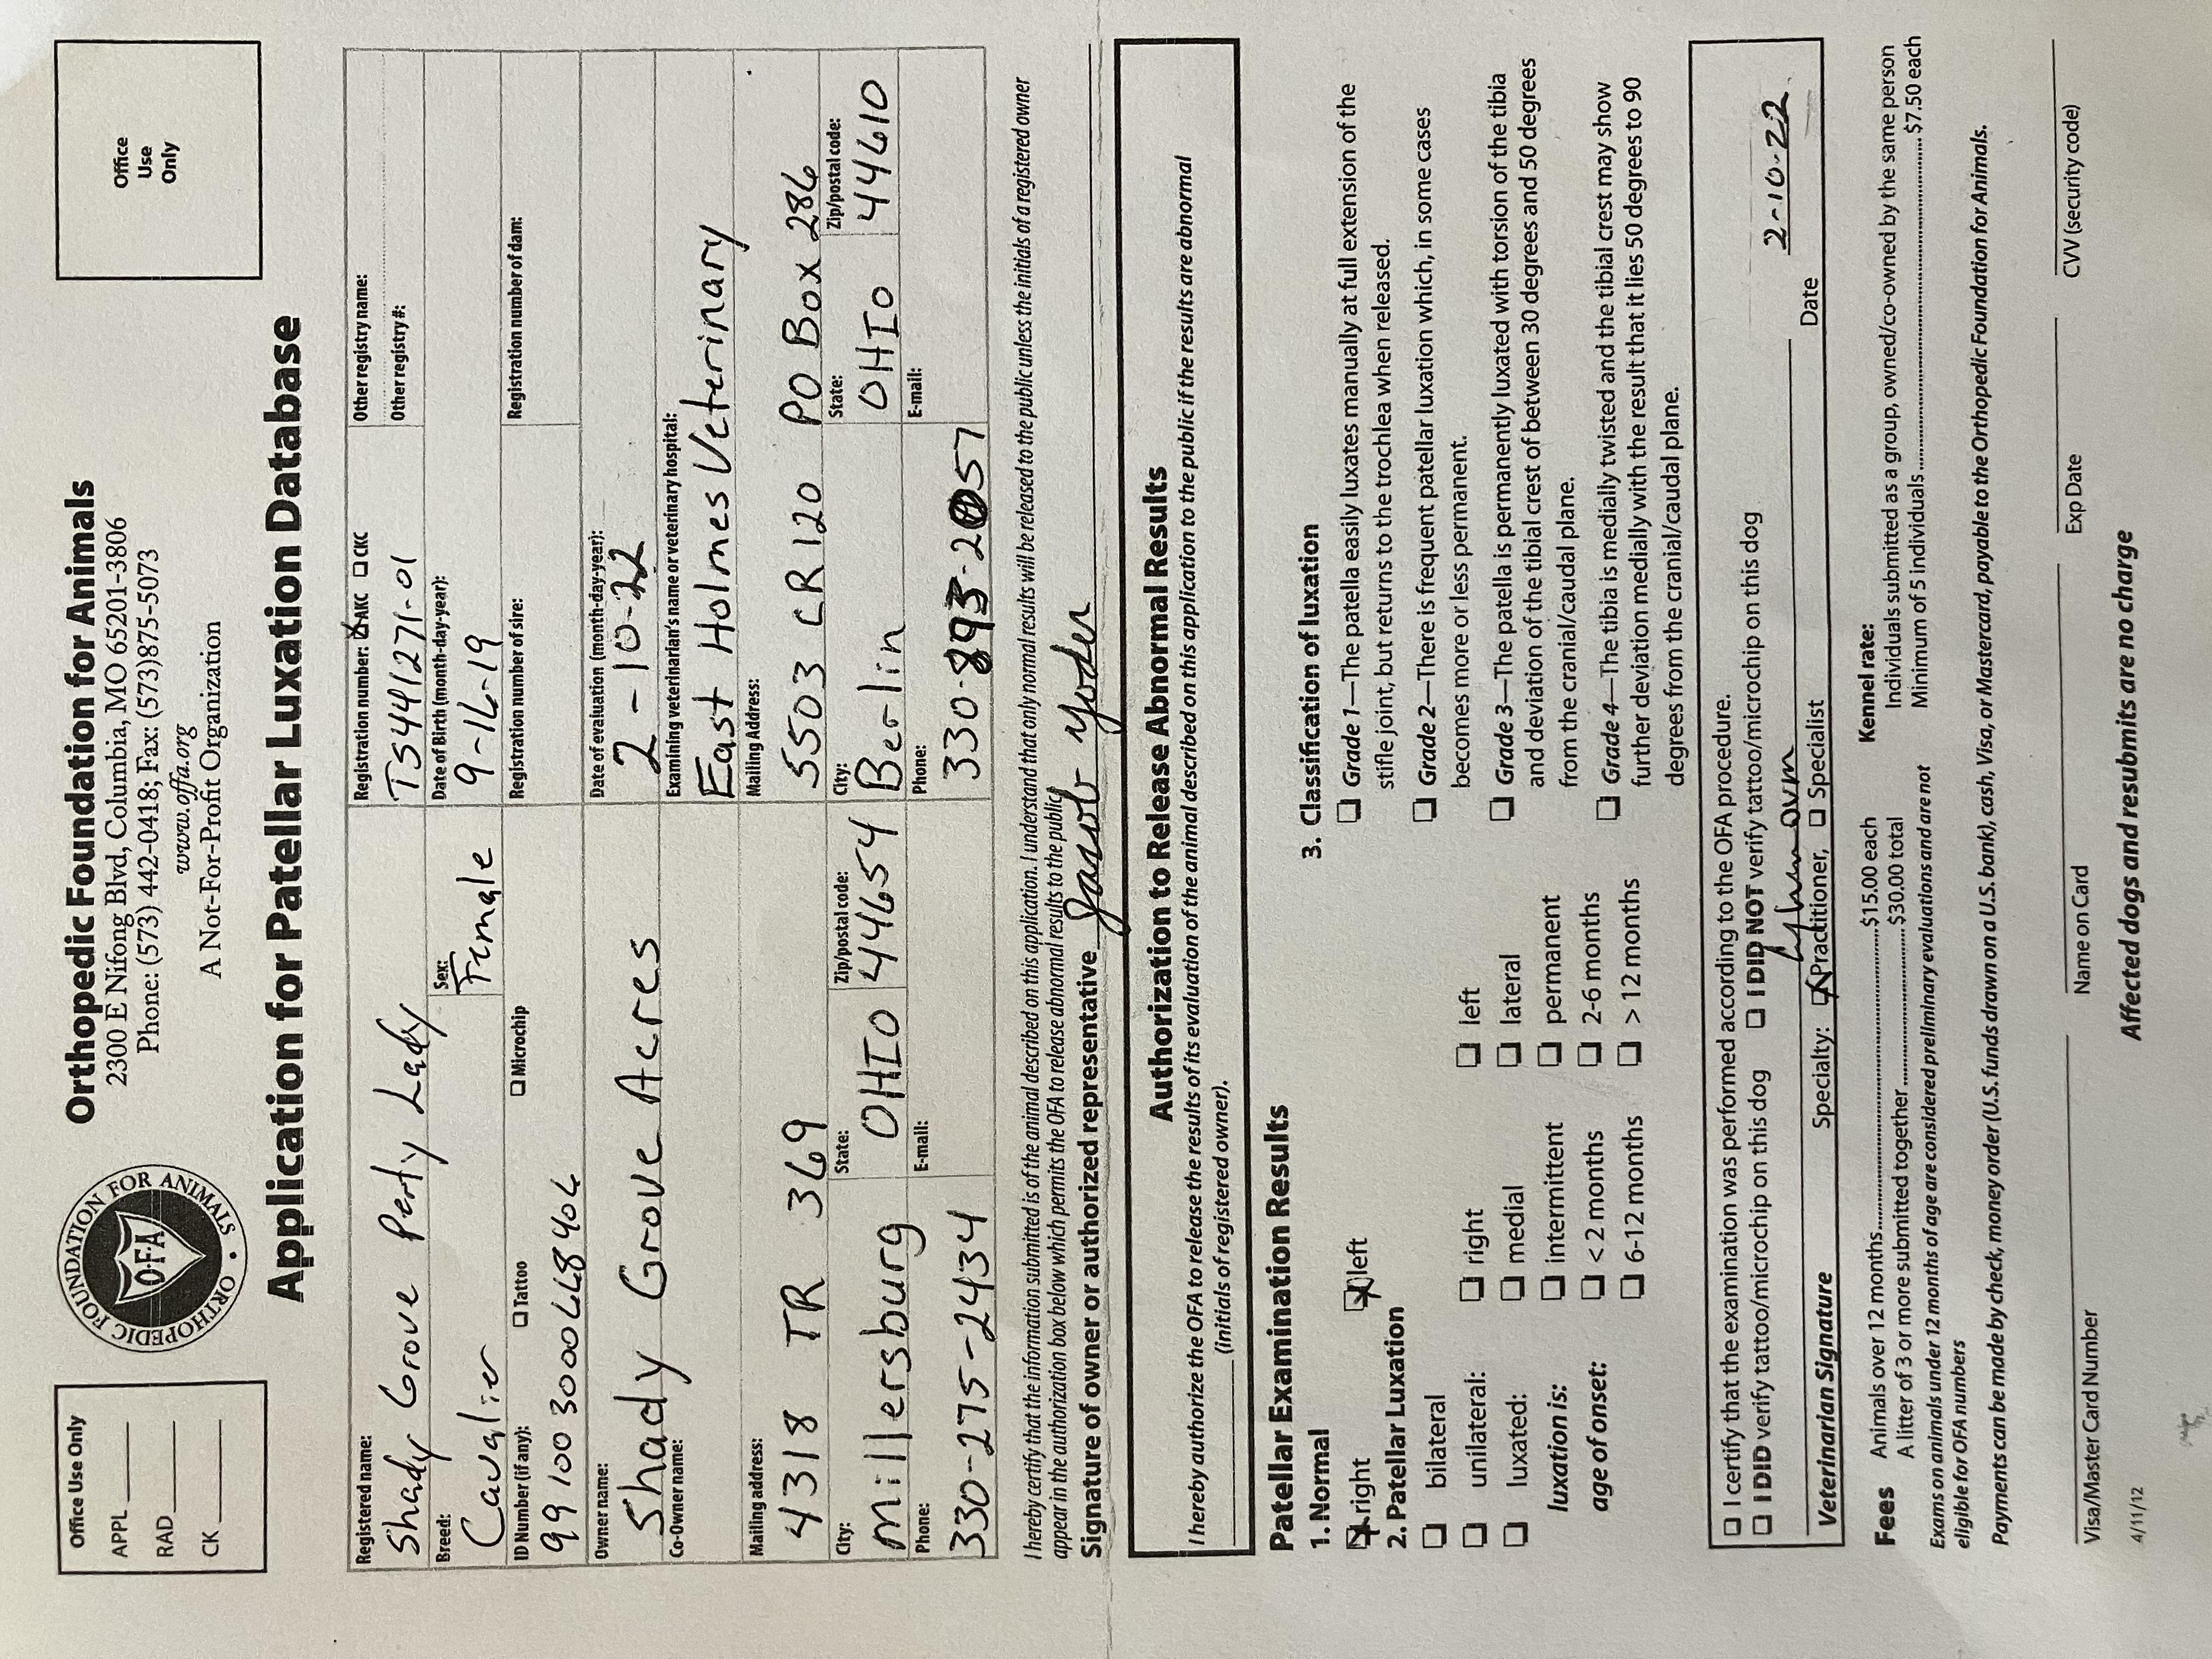 Office Use Only
APPL
RAD
CK
ORTHOPEDIC FOUNDATION FOR ANIMALS
O·F·A
Orthopedic Foundation for Animals
2300 E Nifong Blvd, Columbia, MO 65201-3806
Phone: (573) 442-0418; Fax: (573)875-5073
www.offa.org
A Not-For-Profit Organization
Office
Use
Only
Application for Patellar Luxation Database
Registered name:
Shady Grove Perty Lady
Registration number: ☒ AKC ☐ CKC
TS441271-01
Other registry name:
Other registry #:
Breed:
Cavalier
Sex:
Female
Date of Birth (month-day-year):
9-16-19
ID Number (if any): ☐ Tattoo ☐ Microchip
Registration number of sire:
Registration number of dam:
Owner name:
Shady Grove Acres
Date of evaluation (month-day-year):
2-10-22
Co-Owner name:
Examining veterinarian's name or veterinary hospital:
East Holmes Veterinary
Mailing address:
4318 TR 369
Mailing Address:
5503 CR 120 PO Box 286
City:
Millersburg
State:
OHIO
Zip/postal code:
44654
City:
Berlin
State:
OHIO
Zip/postal code:
44610
Phone:
330-275-2434
E-mail:
Phone:
330-893-2057
E-mail:
I hereby certify that the information submitted is of the animal described on this application. I understand that only normal results will be released to the public unless the initials of a registered owner
appear in the authorization box below which permits the OFA to release abnormal results to the public.
Signature of owner or authorized representative Jacob Yoder
Authorization to Release Abnormal Results
I hereby authorize the OFA to release the results of its evaluation of the animal described on this application to the public if the results are abnormal
(initials of registered owner).
Patellar Examination Results
1. Normal
☒ right ☒ left
2. Patellar Luxation
☐ bilateral
☐ unilateral: ☐ right ☐ left
☐ luxated: ☐ medial ☐ lateral
luxation is: ☐ intermittent ☐ permanent
age of onset: ☐ < 2 months ☐ 2-6 months
☐ 6-12 months ☐ > 12 months
3. Classification of luxation
☐ Grade 1—The patella easily luxates manually at full extension of the
stifle joint, but returns to the trochlea when released.
☐ Grade 2—There is frequent patellar luxation which, in some cases
becomes more or less permanent.
☐ Grade 3—The patella is permanently luxated with torsion of the tibia
and deviation of the tibial crest of between 30 degrees and 50 degrees
from the cranial/caudal plane.
☐ Grade 4—The tibia is medially twisted and the tibial crest may show
further deviation medially with the result that it lies 50 degrees to 90
degrees from the cranial/caudal plane.
☐ I certify that the examination was performed according to the OFA procedure.
☐ I DID verify tattoo/microchip on this dog ☐ I DID NOT verify tattoo/microchip on this dog
DVM
2-10-22
Veterinarian Signature Specialty: ☒ Practitioner, ☐ Specialist Date
Fees Animals over 12 months $15.00 each
A litter of 3 or more submitted together $30.00 total
Exams on animals under 12 months of age are considered preliminary evaluations and are not
eligible for OFA numbers
Kennel rate:
Individuals submitted as a group, owned/co-owned by the same person
Minimum of 5 individuals $7.50 each
Payments can be made by check, money order (U.S. funds drawn on a U.S. bank), cash, Visa, or Mastercard, payable to the Orthopedic Foundation for Animals.
Visa/Master Card Number Name on Card Exp Date CVV (security code)
4/11/12
Affected dogs and resubmits are no charge